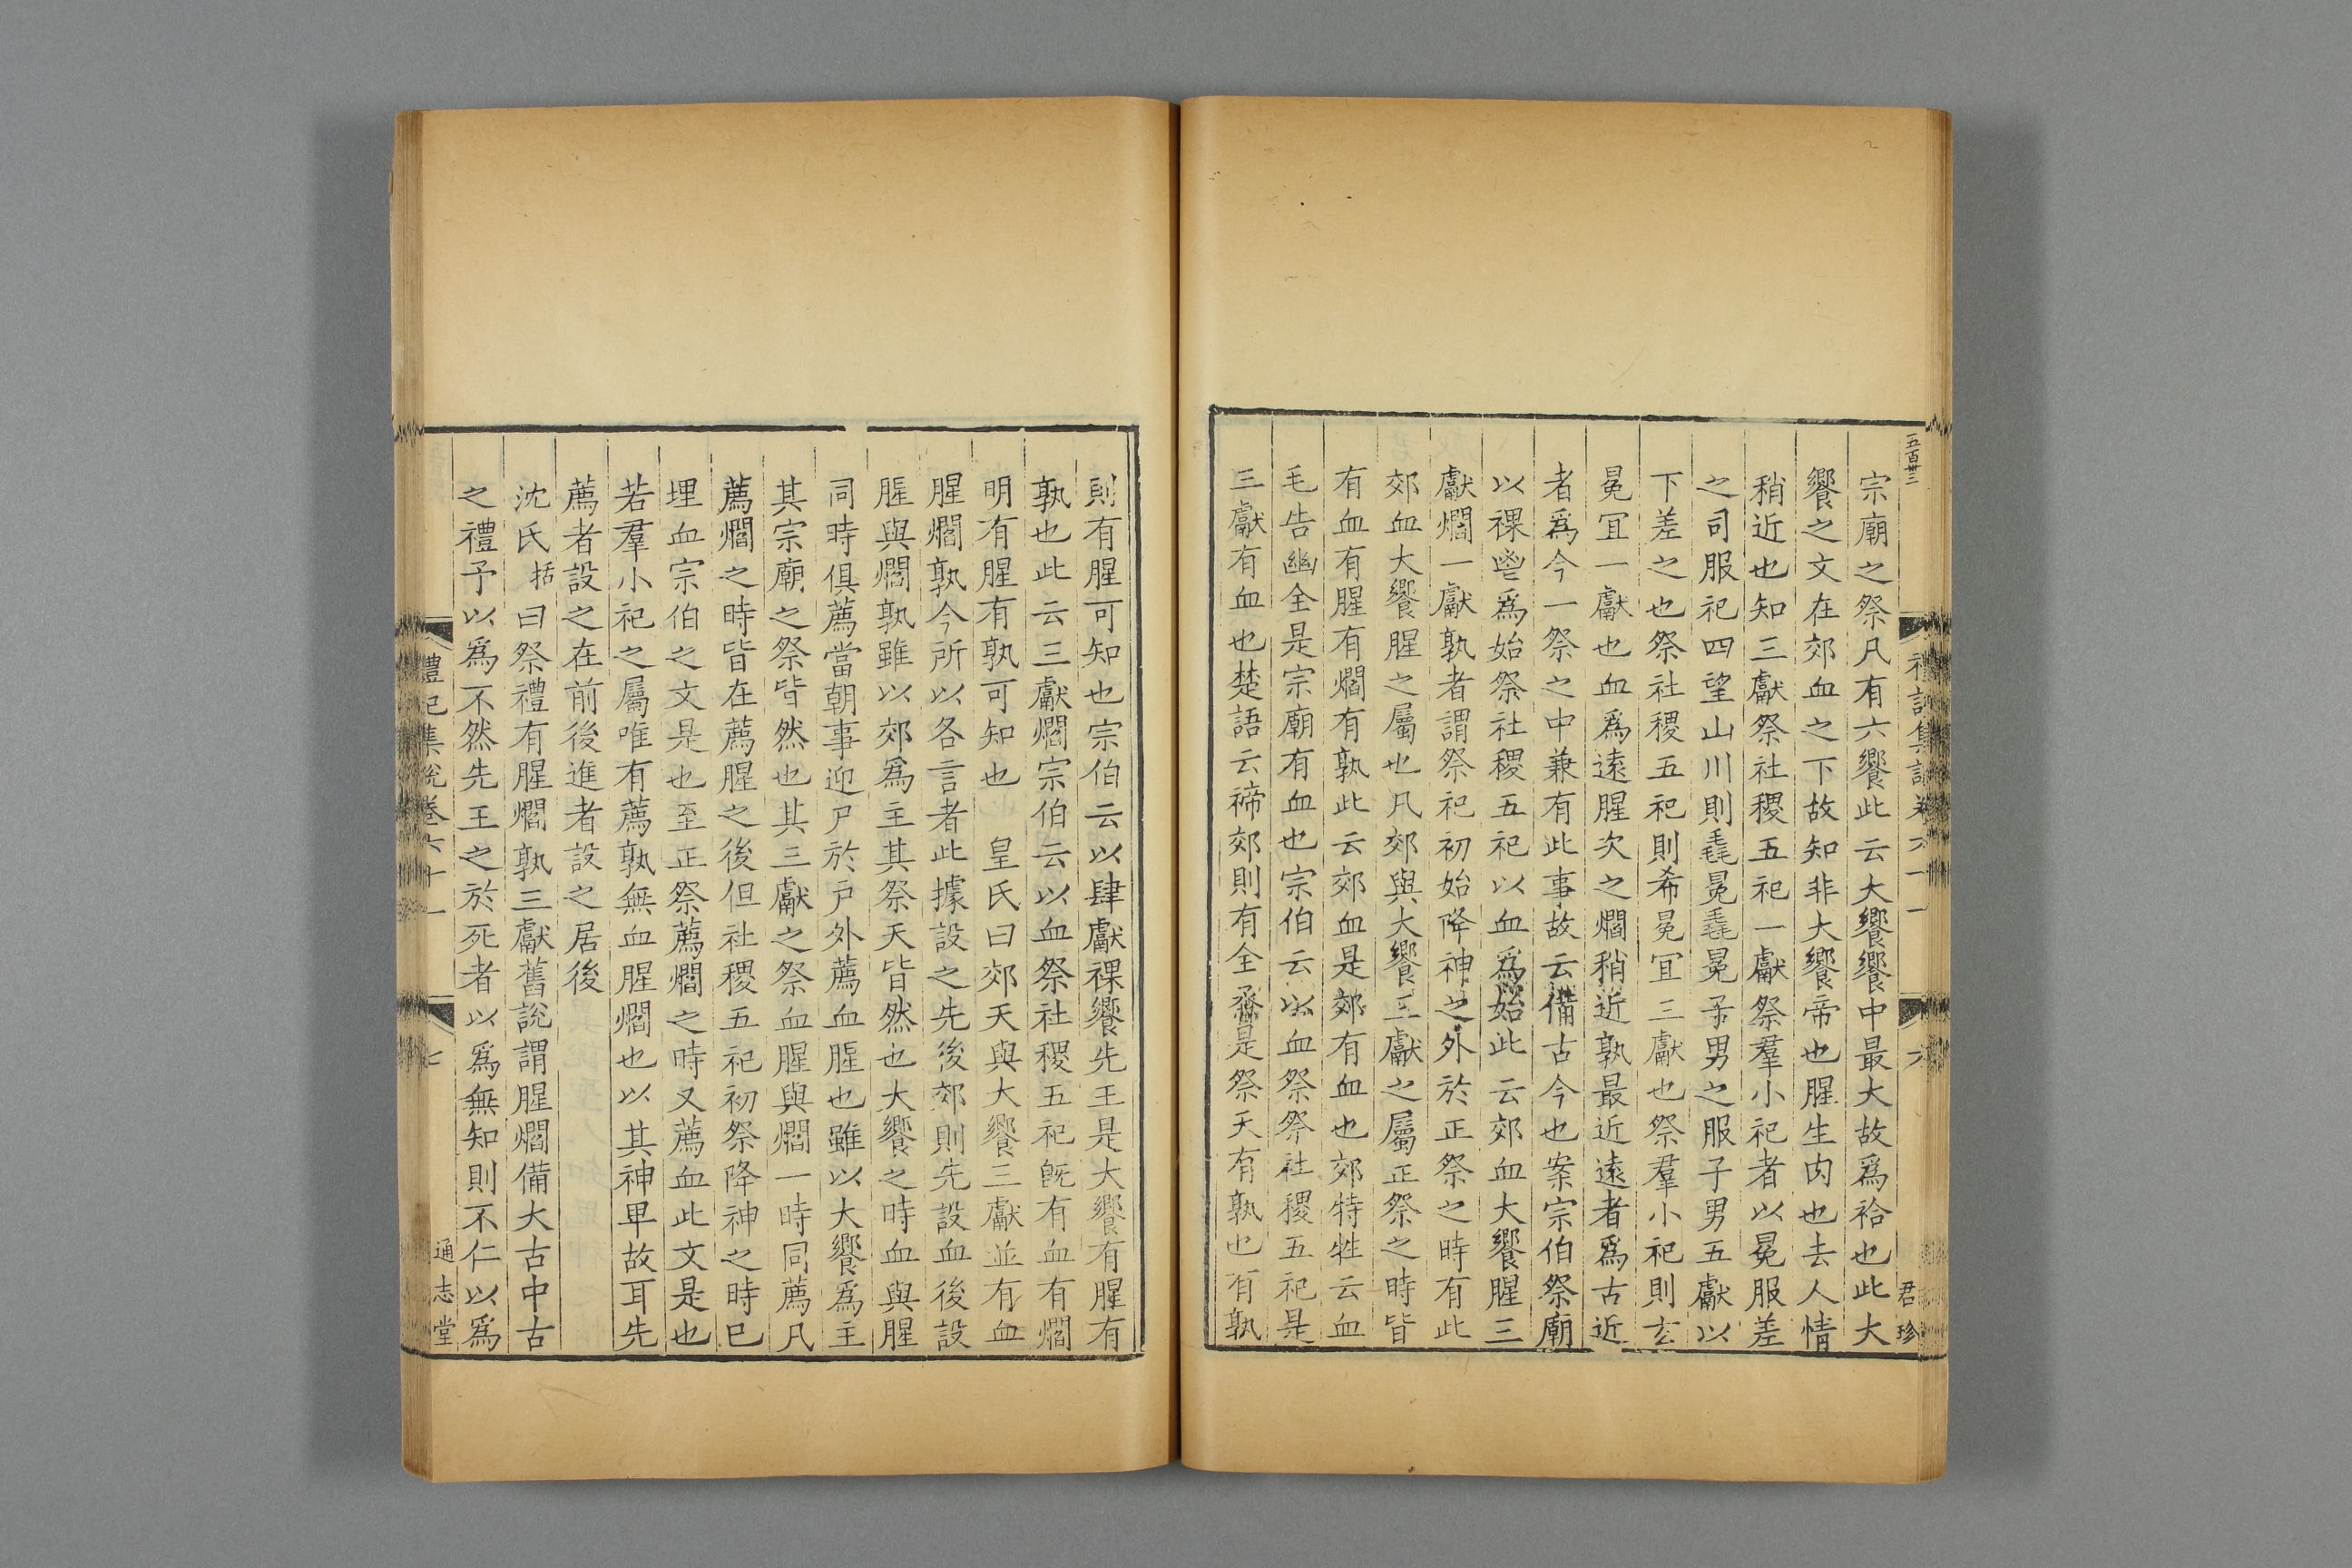 五百卅三
禮記集說卷六十一
六
君珍
宗廟之祭凡有六饗此云大饗饗中最大故爲祫也此大
饗之文在郊血之下故知非大饗帝也腥生肉也去人情
稍近也知三獻祭社稷五祀一獻祭羣小祀者以冕服差
之司服祀四望山川則毳冕毳冕子男之服子男五獻以
下差之也祭社稷五祀則希冕冝三獻也祭羣小祀則玄
冕冝一獻也血爲遠腥次之爓稍近孰最近遠者爲古近
者爲今一祭之中兼有此事故云備古今也案宗伯祭廟
以祼鬯爲始祭社稷五祀以血爲始此云郊血大饗腥三
獻爓一獻孰者謂祭祀初始降神之外於正祭之時有此
郊血大饗腥之屬也凡郊與大饗三獻之屬正祭之時皆
有血有腥有爓有孰此云郊血是郊有血也郊特牲云血
毛告幽全是宗廟有血也宗伯云以血祭祭社稷五祀是
三獻有血也楚語云禘郊則有全烝是祭天有孰也有孰
則有腥可知也宗伯云以肆獻祼饗先王是大饗有腥有
孰也此云三獻爓宗伯云以血祭社稷五祀旣有血有爓
明有腥有孰可知也　皇氏曰郊天與大饗三獻並有血
腥爓孰今所以各言者此據設之先後郊則先設血後設
腥與爓孰雖以郊爲主其祭天皆然也大饗之時血與腥
同時俱薦當朝事迎尸於戶外薦血腥也雖以大饗爲主
其宗廟之祭皆然也其三獻之祭血腥與爓一時同薦凡
薦爓之時皆在薦腥之後但社稷五祀初祭降神之時已
埋血宗伯之文是也至正祭薦爓之時又薦血此文是也
若羣小祀之屬唯有薦孰無血腥爓也以其神卑故耳先
薦者設之在前後進者設之居後
沈氏括曰祭禮有腥爓孰三獻舊說謂腥爓備大古中古
之禮予以爲不然先王之於死者以爲無知則不仁以爲
禮記集說卷六十一
七
通志堂